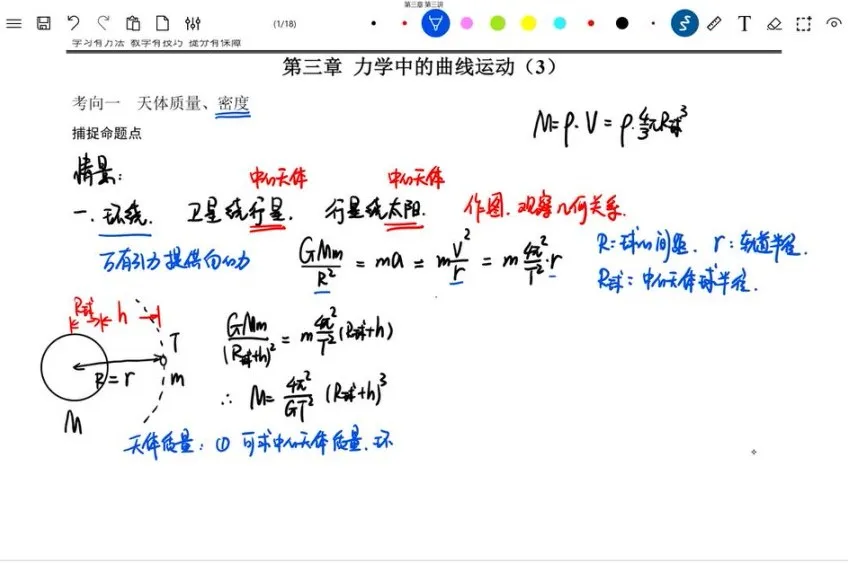 第三章 第三讲
(1/18)
学习有方法 教学有技巧 提分有保障
第三章 力学中的曲线运动（3）
考向一 天体质量、密度
M=ρ·V=ρ·4/3πR球³
捕捉命题点
情景:
中心天体 中心天体
一. 环绕. 卫星绕行星. 行星绕太阳. 作图.观察几何关系.
万有引力提供向心力 GMm/R² = ma = m v²/r = m 4π²/T²·r
R=球心间距. r: 轨道半径.
R球: 中心天体球半径.
R球 h
T
R=r m
M
GMm/(R球+h)² = m 4π²/T² (R球+h)
∴ M= 4π²/GT² (R球+h)³
天体质量: ① 可求中心天体质量.环